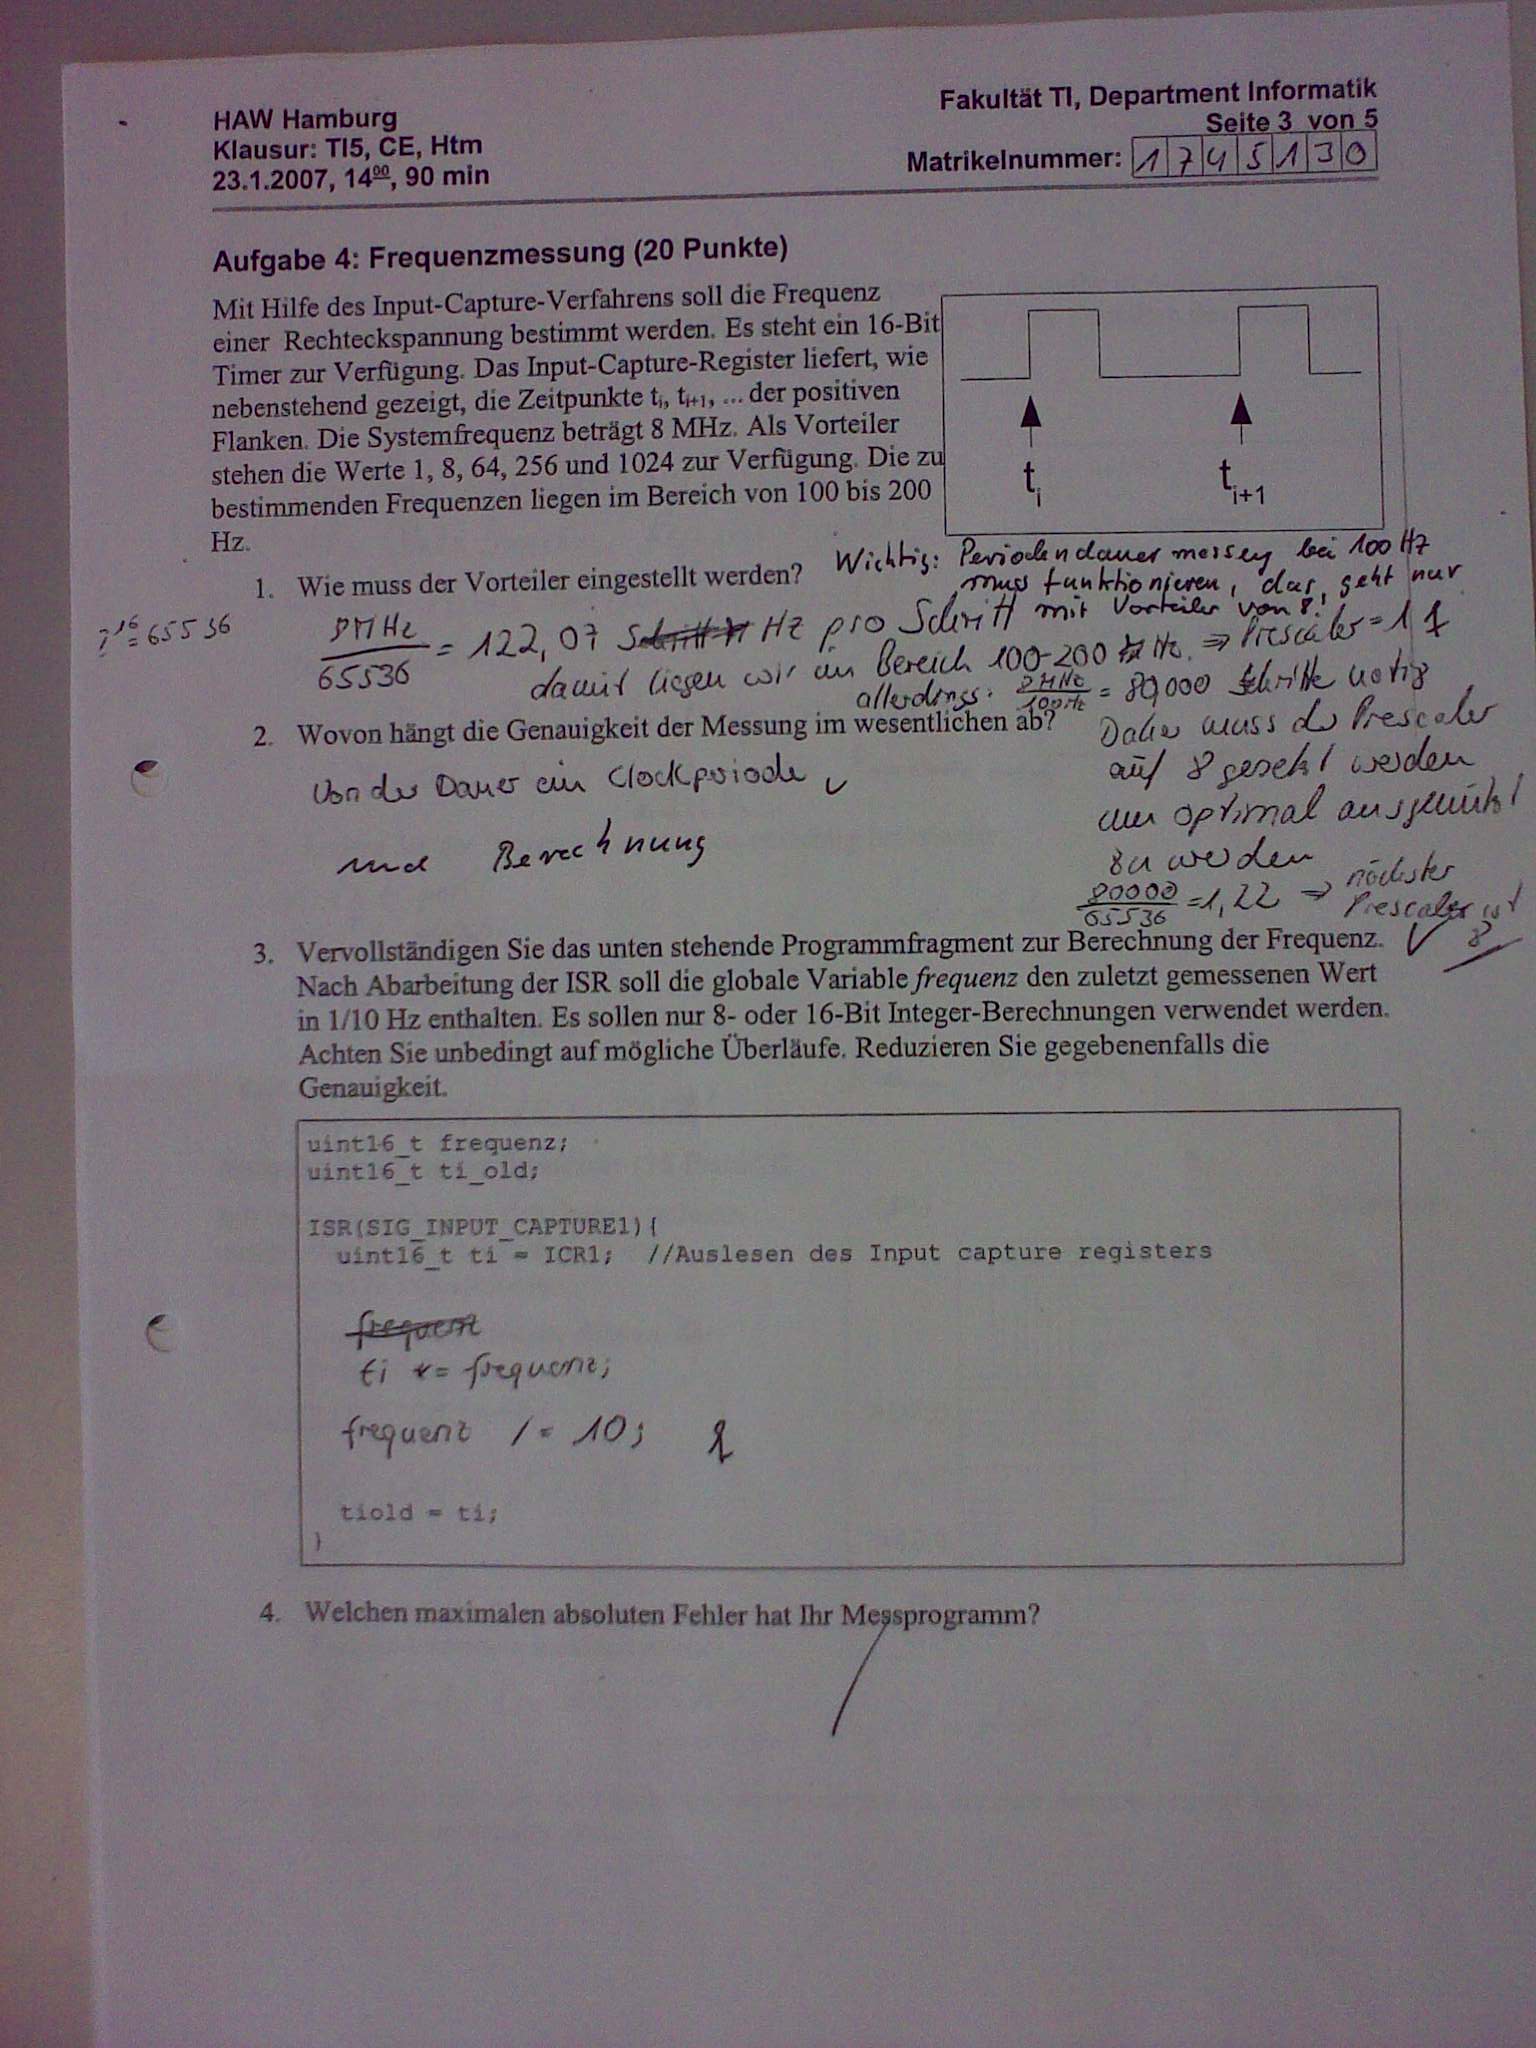 HAW Hamburg
Klausur: TI5, CE, Htm
23.1.2007, 14⁰⁰, 90 min
Fakultät TI, Department Informatik
Seite 3 von 5
Matrikelnummer: 1745130
Aufgabe 4: Frequenzmessung (20 Punkte)
Mit Hilfe des Input-Capture-Verfahrens soll die Frequenz
einer Rechteckspannung bestimmt werden. Es steht ein 16-Bit
Timer zur Verfügung. Das Input-Capture-Register liefert, wie
nebenstehend gezeigt, die Zeitpunkte ti, ti+1, ... der positiven
Flanken. Die Systemfrequenz beträgt 8 MHz. Als Vorteiler
stehen die Werte 1, 8, 64, 256 und 1024 zur Verfügung. Die zu
bestimmenden Frequenzen liegen im Bereich von 100 bis 200
Hz.
ti ti+1
1. Wie muss der Vorteiler eingestellt werden?
Wichtig: Periodendauer messen bei 100 Hz
muss funktionieren, das geht nur
mit Vorteiler von 8!
2^16 = 65536
8MHz / 65536 = 122,07 Hz pro Schritt
damit liegen wir im Bereich 100-200 Hz. => Prescaler = 1
allerdings: 8MHz / 100Hz = 80,000 Schritte nötig
Daher muss der Prescaler
auf 8 gesetzt werden
um optimal ausgenützt
zu werden
80000 / 65536 = 1,22 => nächster
Prescaler ist
8
2. Wovon hängt die Genauigkeit der Messung im wesentlichen ab?
Von der Dauer ein Clockperiode
und Berechnung
3. Vervollständigen Sie das unten stehende Programmfragment zur Berechnung der Frequenz.
Nach Abarbeitung der ISR soll die globale Variable frequenz den zuletzt gemessenen Wert
in 1/10 Hz enthalten. Es sollen nur 8- oder 16-Bit Integer-Berechnungen verwendet werden.
Achten Sie unbedingt auf mögliche Überläufe. Reduzieren Sie gegebenenfalls die
Genauigkeit.
uint16_t frequenz;
uint16_t ti_old;
ISR(SIG_INPUT_CAPTURE1){
uint16_t ti = ICR1; //Auslesen des Input capture registers
ti *= frequenz;
frequenz /= 10;
tiold = ti;
}
4. Welchen maximalen absoluten Fehler hat Ihr Messprogramm?